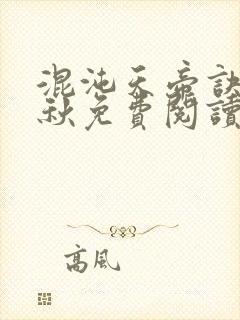 混沌天帝訣
秋免費閱讀
高風